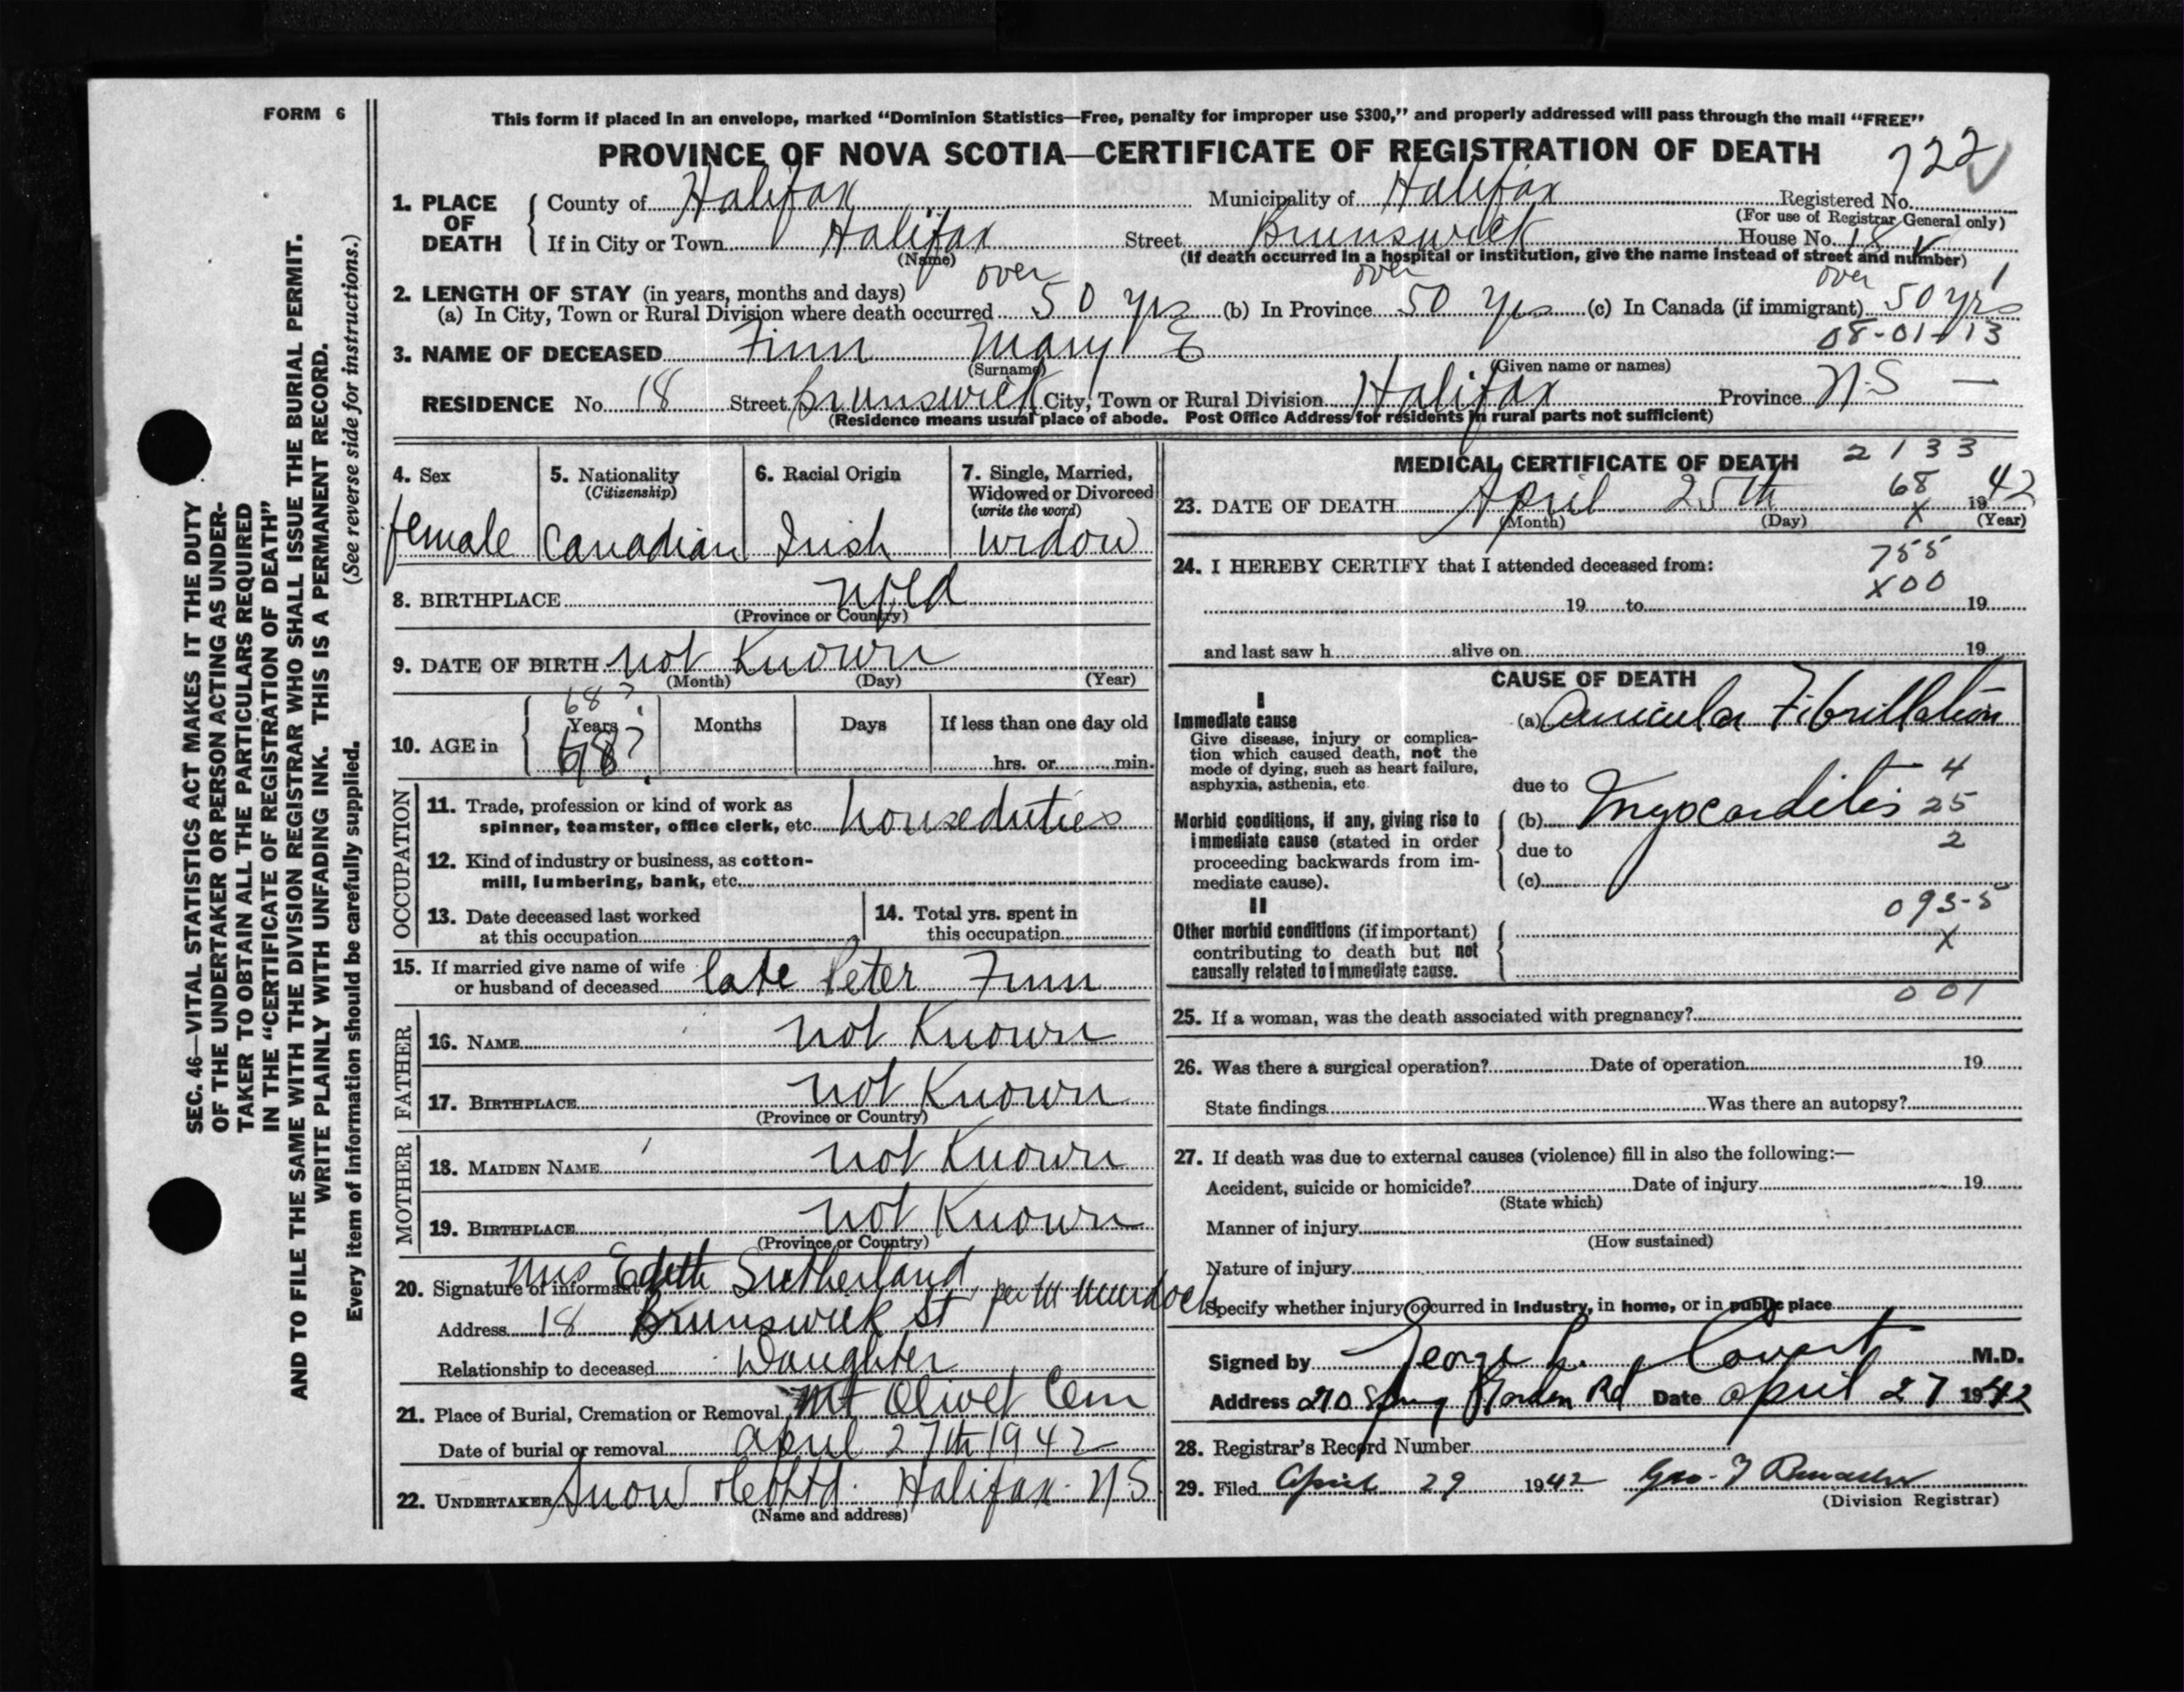 FORM 6
This form if placed in an envelope, marked “Dominion Statistics—Free, penalty for improper use $300,” and properly addressed will pass through the mail “FREE”
PROVINCE OF NOVA SCOTIA—CERTIFICATE OF REGISTRATION OF DEATH 722
1. PLACE OF DEATH County of Halifax Municipality of Halifax Registered No.
(For use of Registrar General only)
If in City or Town Halifax Street Brunswick House No. 18
(Name) (If death occurred in a hospital or institution, give the name instead of street and number)
2. LENGTH OF STAY (in years, months and days) over over over
(a) In City, Town or Rural Division where death occurred 50 yrs (b) In Province 50 yrs (c) In Canada (if immigrant) 50 yrs
08-01-13
3. NAME OF DECEASED Finn Mary E
(Surname) (Given name or names)
RESIDENCE No. 18 Street Brunswick City, Town or Rural Division Halifax Province N.S —
(Residence means usual place of abode. Post Office Address for residents in rural parts not sufficient)
4. Sex
female
5. Nationality
(Citizenship)
Canadian
6. Racial Origin
Irish
7. Single, Married,
Widowed or Divorced
(write the word)
widow
8. BIRTHPLACE Nfld
(Province or Country)
9. DATE OF BIRTH not Known
(Month) (Day) (Year)
68?
10. AGE in Years Months Days If less than one day old
68? hrs. or min.
OCCUPATION
11. Trade, profession or kind of work as
spinner, teamster, office clerk, etc. houseduties
12. Kind of industry or business, as cotton-
mill, lumbering, bank, etc.
13. Date deceased last worked
at this occupation
14. Total yrs. spent in
this occupation
15. If married give name of wife
or husband of deceased late Peter Finn
FATHER
16. NAME not Known
17. BIRTHPLACE not Known
(Province or Country)
MOTHER
18. MAIDEN NAME not Known
19. BIRTHPLACE not Known
(Province or Country)
20. Signature of informant Mrs Edith Sutherland per M Murdoch
Address 18 Brunswick St
Relationship to deceased Daughter
21. Place of Burial, Cremation or Removal Mt Olivet Cem
Date of burial or removal April 27th 1942
22. UNDERTAKER Snow & Co Ltd. Halifax N.S
(Name and address)
MEDICAL CERTIFICATE OF DEATH 2133
68
23. DATE OF DEATH April 25th 1942
(Month) (Day) X (Year)
24. I HEREBY CERTIFY that I attended deceased from: 755
X00
19 to 19
and last saw h alive on 19
CAUSE OF DEATH
I
Immediate cause
Give disease, injury or complica-
tion which caused death, not the
mode of dying, such as heart failure,
asphyxia, asthenia, etc.
(a) Auricular Fibrillation
due to 4
Morbid conditions, if any, giving rise to
immediate cause (stated in order
proceeding backwards from im-
mediate cause).
(b) Myocarditis 25
due to 2
(c)
II 093-5
Other morbid conditions (if important)
contributing to death but not
causally related to immediate cause.
X
001
25. If a woman, was the death associated with pregnancy?
26. Was there a surgical operation? Date of operation 19
State findings Was there an autopsy?
27. If death was due to external causes (violence) fill in also the following:—
Accident, suicide or homicide? Date of injury 19
(State which)
Manner of injury
(How sustained)
Nature of injury
Specify whether injury occurred in Industry, in home, or in public place
Signed by George L. Covert M.D.
Address 210 Spring Garden Rd Date April 27 1942
28. Registrar's Record Number
29. Filed April 29 1942 Geo. F
(Division Registrar)
SEC. 46—VITAL STATISTICS ACT MAKES IT THE DUTY
OF THE UNDERTAKER OR PERSON ACTING AS UNDER-
TAKER TO OBTAIN ALL THE PARTICULARS REQUIRED
IN THE “CERTIFICATE OF REGISTRATION OF DEATH”
AND TO FILE THE SAME WITH THE DIVISION REGISTRAR WHO SHALL ISSUE THE BURIAL PERMIT.
WRITE PLAINLY WITH UNFADING INK. THIS IS A PERMANENT RECORD.
Every item of information should be carefully supplied. (See reverse side for instructions.)